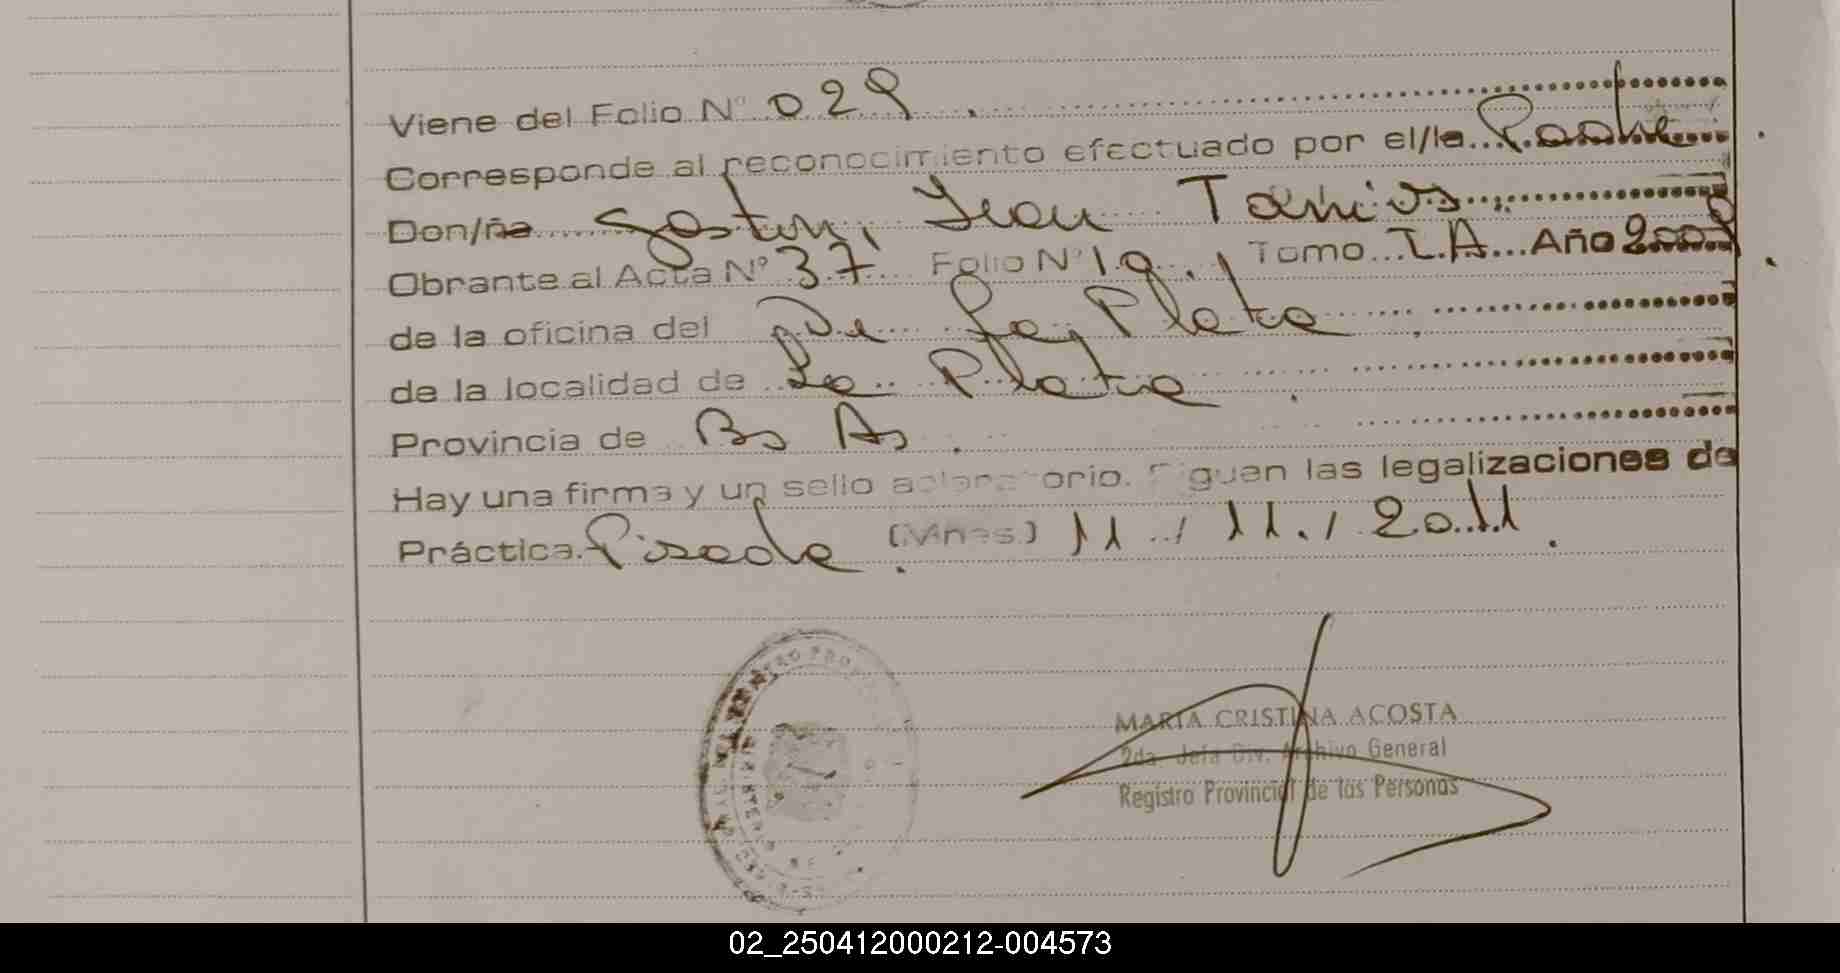 Viene del Folio Nº 029 .
Corresponde al reconocimiento efectuado por el/la Padre
Don/ña Gaston, Jean
Obrante al Acta Nº 37 Folio Nº 19 . Tomo I.A Año 2009
de la oficina del De La Plata
de la localidad de La Plata .
Provincia de Bs As .
Hay una firma y un sello aclaratorio. Siguen las legalizaciones de
Práctica. Posada . (Mnes.) 11 / 11 . / 2011 .
MARIA CRISTINA ACOSTA
2da. Jefa Div. Archivo General
Registro Provincial de las Personas
02_250412000212-004573